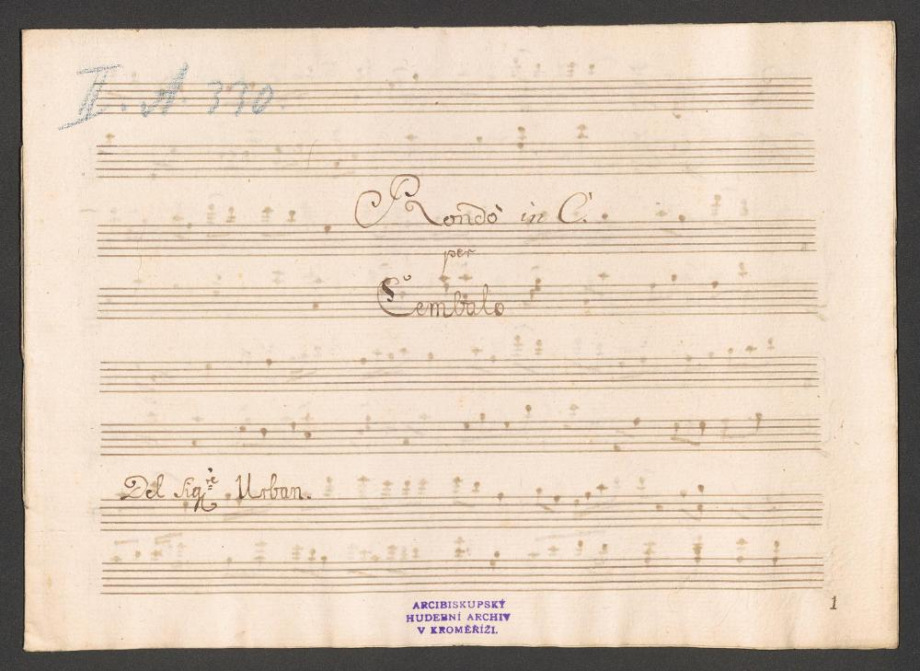 II. A 330.
Rondò in C.
per
Cembalo
Del Sigre Urban.
1
ARCIBISKUPSKÝ
HUDEBNÍ ARCHIV
V KROMĚŘÍŽI.